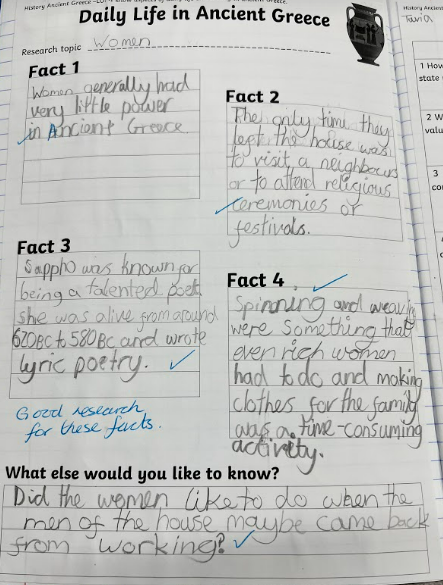 Daily Life in Ancient Greece
Research topic Women
Fact 1
Women generally had
very little power
in Ancient Greece
Fact 2
The only time they
left the house was
to visit a neighbours
or to attend religious
ceremonies or
festivals.
Fact 3
Sappho was known for
being a talented poet.
she was alive from around
620BC to 580BC and wrote
lyric poetry.
Good research
for these facts.
Fact 4
Spinning and weaving
were something that
even rich women
had to do and making
clothes for the family
was a time-consuming
activity.
What else would you like to know?
Did the women like to do when the
men of the house maybe came back
from working?
History Ancient
1 How
state
2 W
valu
3
co